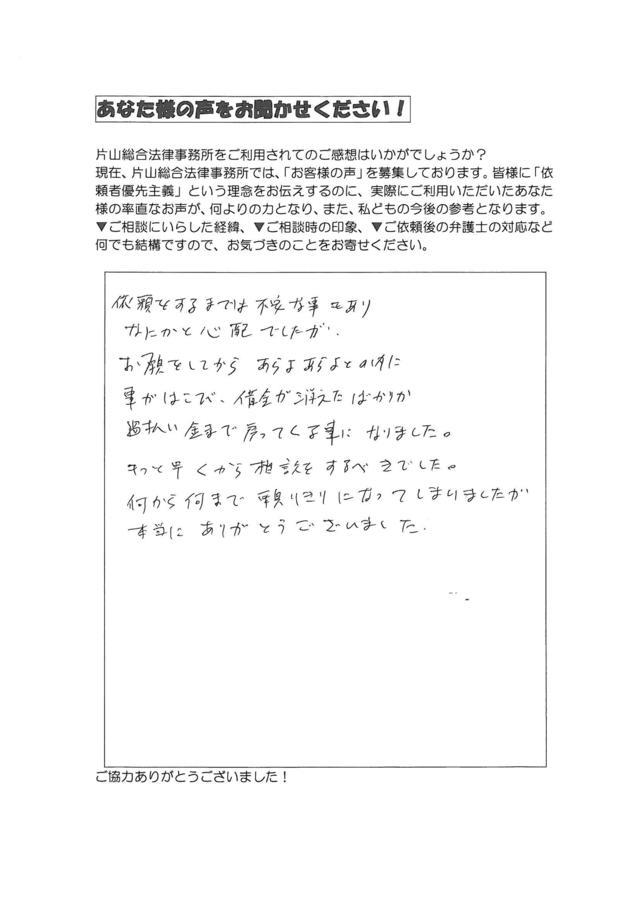 あなた様の声をお聞かせください！
片山総合法律事務所をご利用されてのご感想はいかがでしょうか？
現在、片山総合法律事務所では、「お客様の声」を募集しております。皆様に「依
頼者優先主義」という理念をお伝えするのに、実際にご利用いただいたあなた
様の率直なお声が、何よりの力となり、また、私どもの今後の参考となります。
▼ご相談にいらした経緯、▼ご相談時の印象、▼ご依頼後の弁護士の対応など
何でも結構ですので、お気づきのことをお寄せください。
依頼をするまでは不安な事もあり
なにかと心配でしたが、
お願をしてから あらよあらよとの内に
事がはこび、借金が消えたばかりか
過払い金まで戻ってくる事になりました。
もっと早くから相談をするべきでした。
何から何まで頼りきりになってしまいましたが
本当にありがとうございました。
ご協力ありがとうございました！